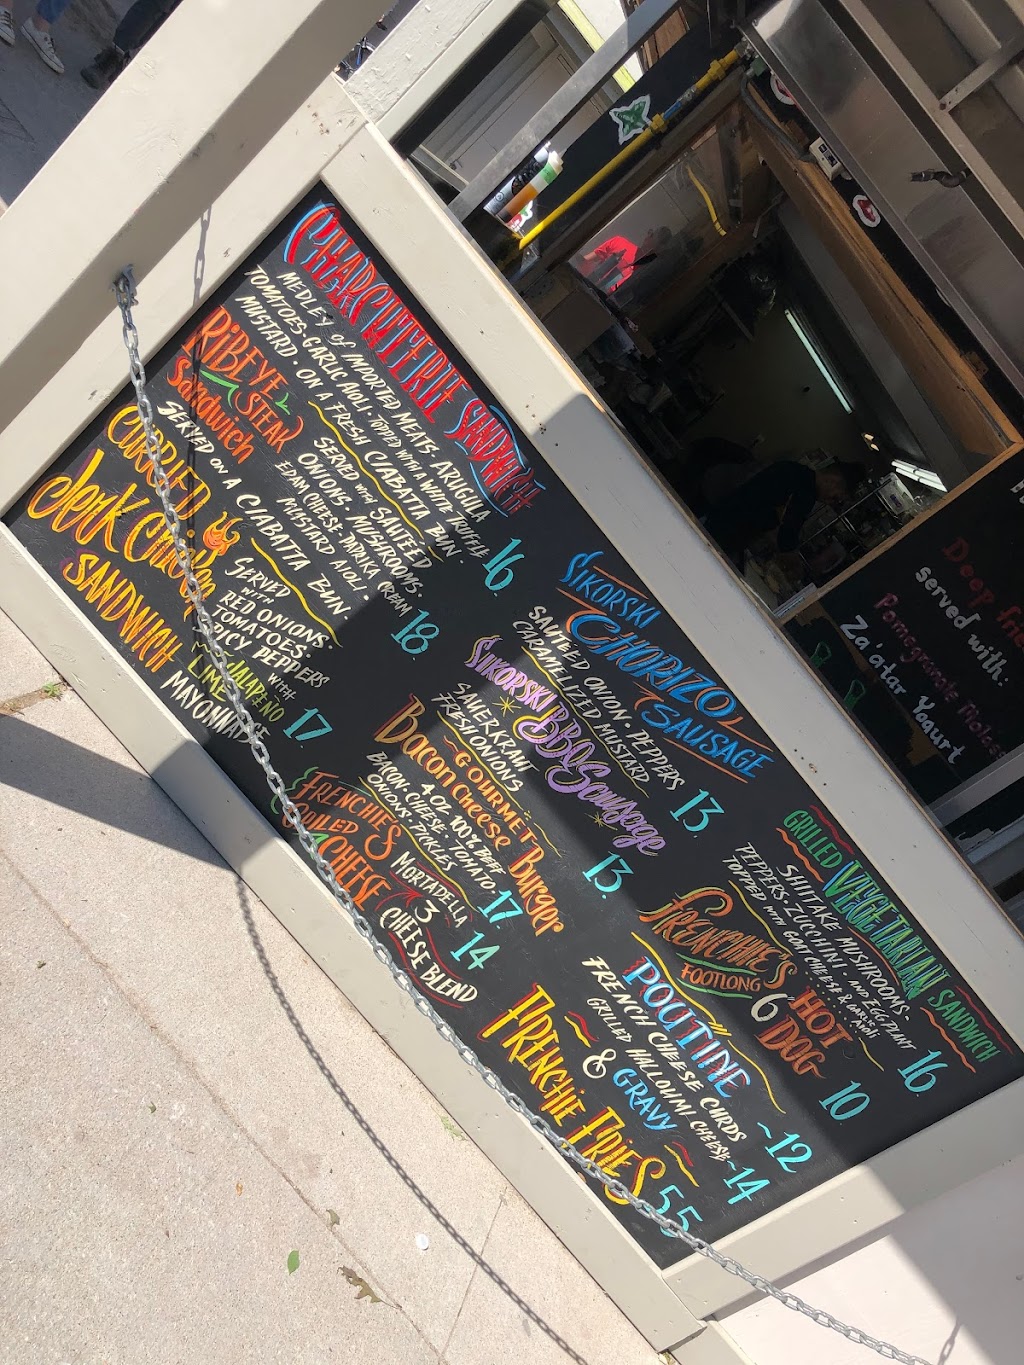 CHARCUTERIE SANDWICH
MEDLEY OF IMPORTED MEATS, ARUGULA
TOMATOES · GARLIC AIOLI · TOPPED WITH A WHITE TRUFFLE
MUSTARD · ON A FRESH CIABATTA BUN · 16
RIBEYE STEAK
Sandwich
SERVED WITH SAUTÉED
ONIONS, MUSHROOMS ·
EDAM CHEESE · PAPRIKA CREAM
MUSTARD AIOLI · 18
SERVED ON A CIABATTA BUN ·
CURRIED
Jerk Chicken
SANDWICH
SERVED
WITH
RED ONIONS ·
TOMATOES
SPICY PEPPERS
WITH
JALAPENO
LIME
MAYONNAISE 17
SIKORSKI
CHORIZO
SAUSAGE
SAUTEED ONION · PEPPERS
CARAMELIZED MUSTARD 13
SIKORSKI
BBQ Sausage
SAUERKRAUT
FRESH ONIONS 13
~GOURMET
Bacon Cheese Burger
4 OZ 100% BEEF
BACON · CHEESE · TOMATO
ONIONS · PICKLES 17
FRENCHIE'S
GRILLED CHEESE
MORTADELLA 14
3
CHEESE BLEND
GRILLED VEGETARIAN SANDWICH
SHIITAKE MUSHROOMS ·
PEPPERS · ZUCCHINI · AND EGGPLANT
TOPPED WITH GOAT CHEESE & GARLIC AIOLI 16
FRENCHIE'S
FOOTLONG
HOT
DOG 10
POUTINE
FRENCH CHEESE CURDS ~12
GRILLED HALLOUMI CHEESE ~14
& GRAVY
FRENCHIE FRIES
Deep
served with:
Pomegranate
Za'atar Yogurt